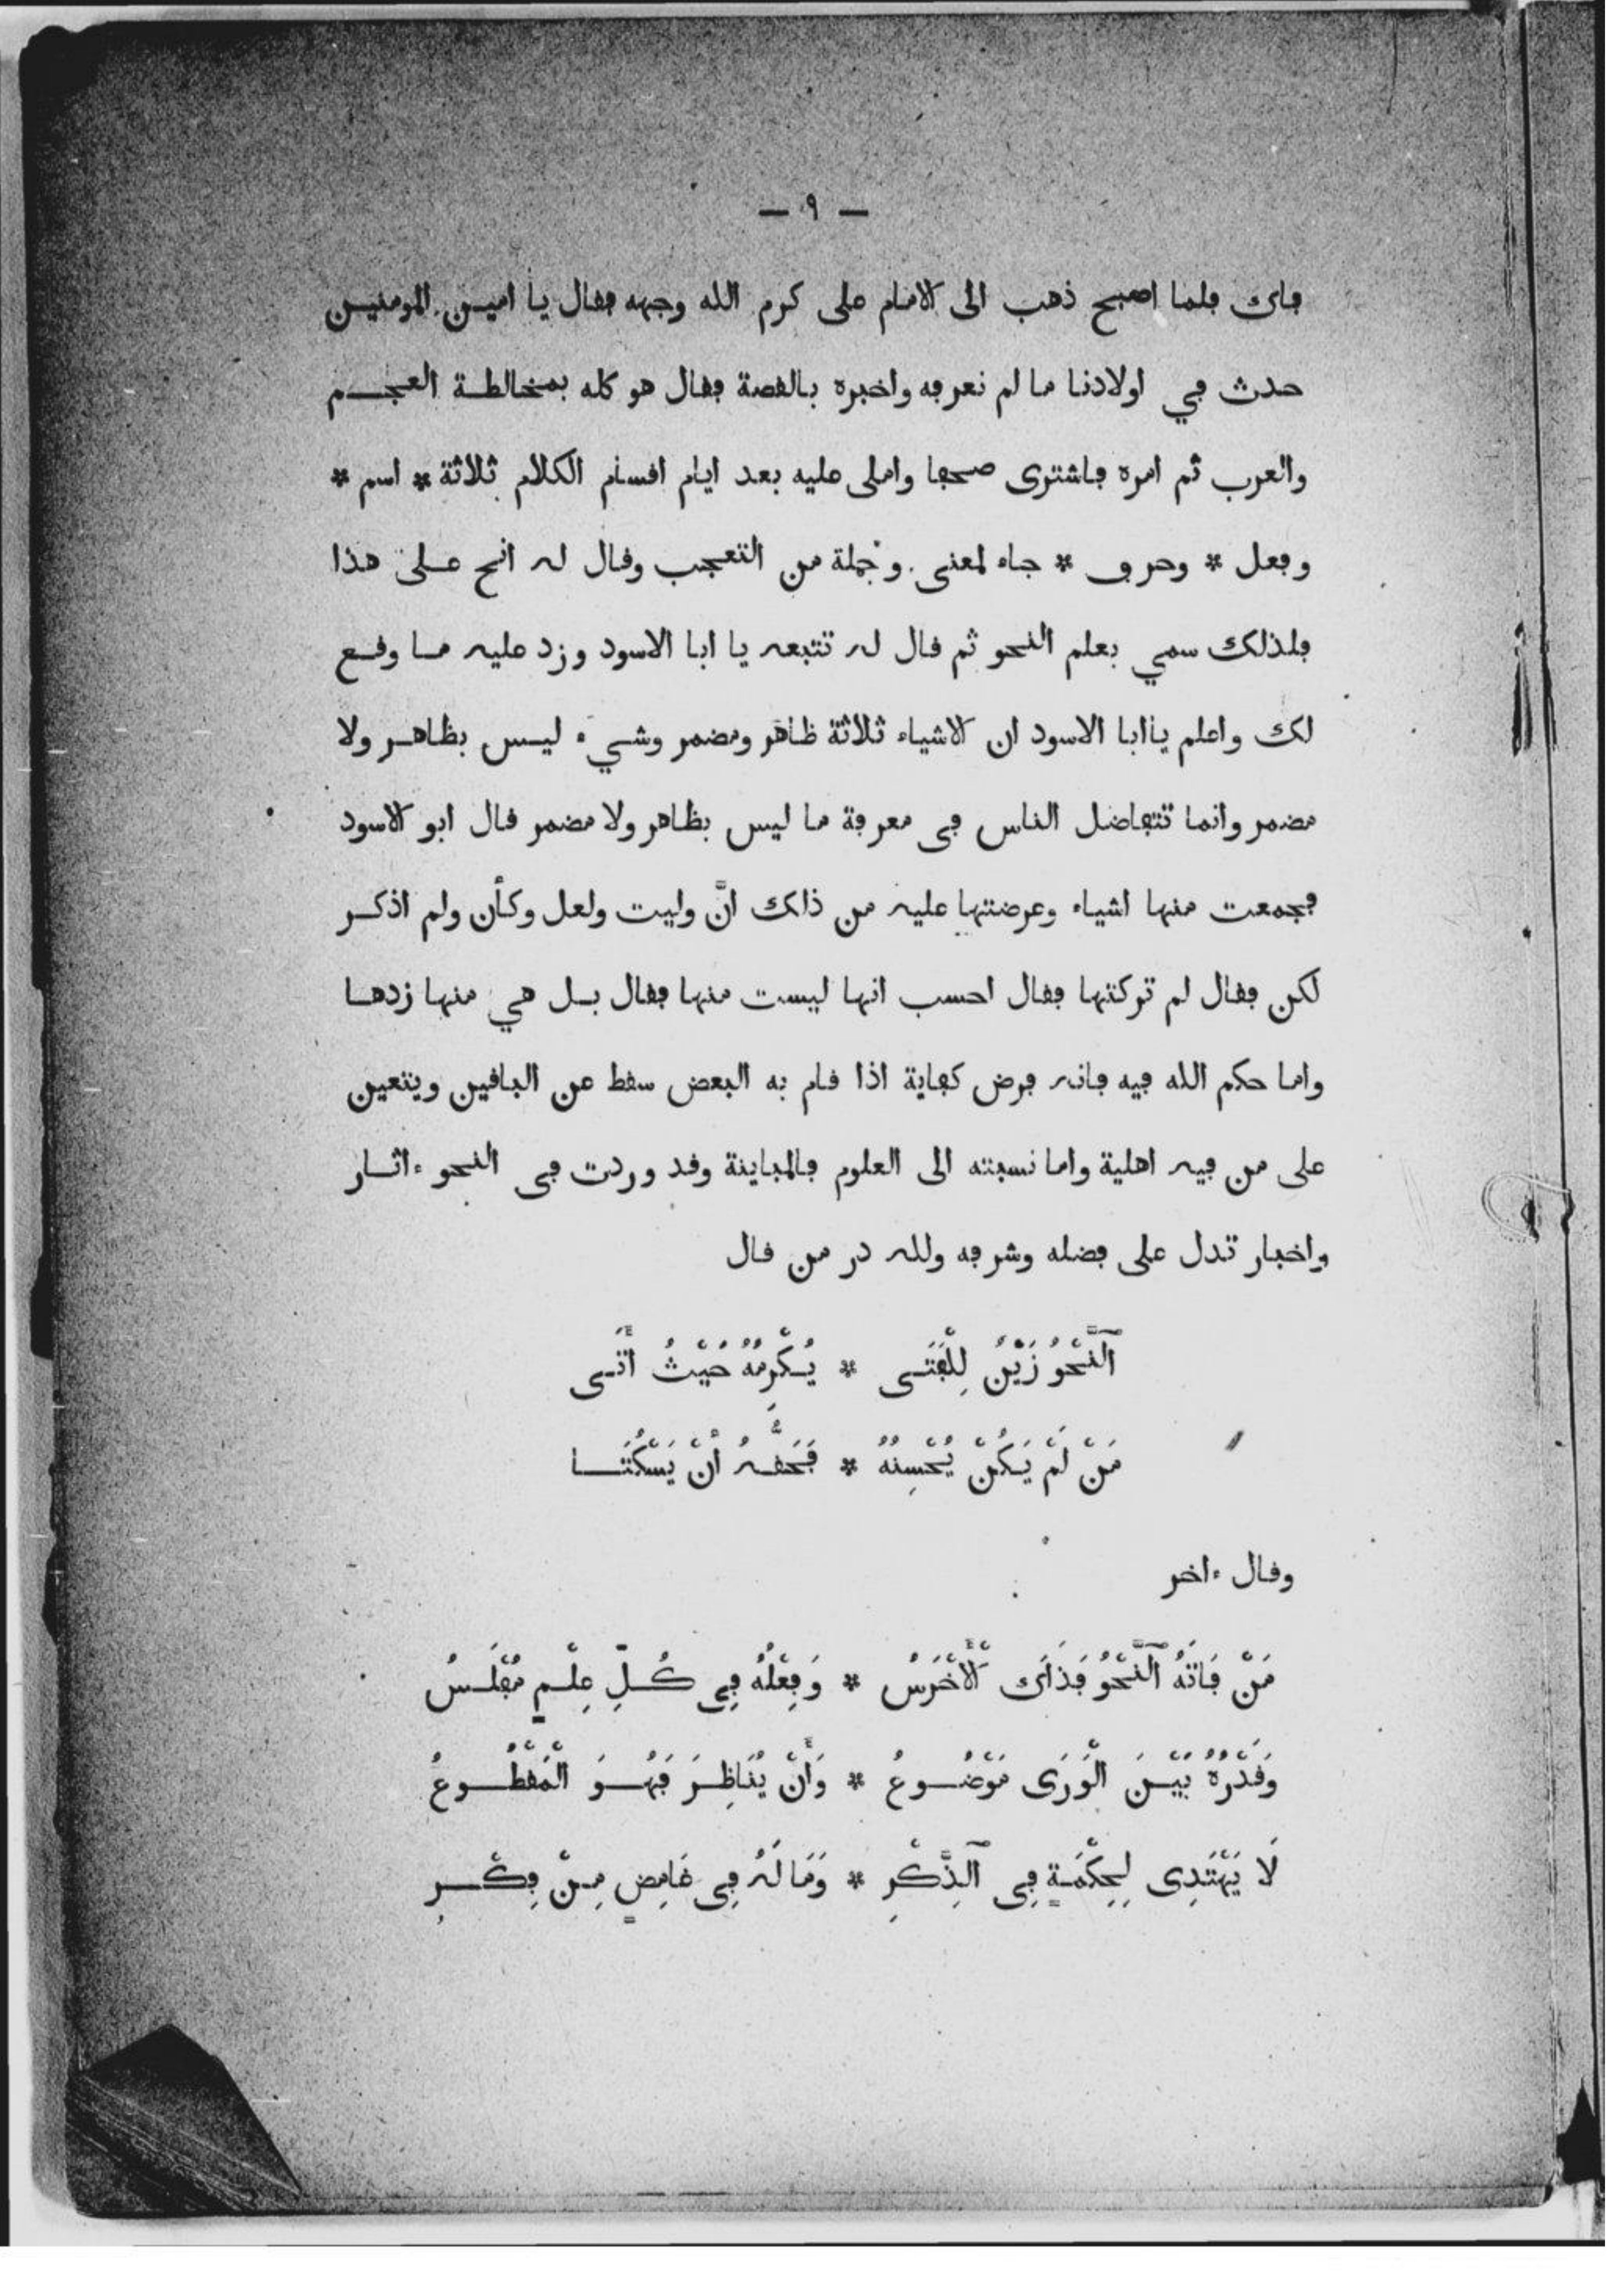 — ٩ —
فاك فلما اصبح ذهب الى الامام على كرم الله وجهه فقال يا امير المومنين
حدث في اولادنا ما لم نعرفه واخبره بالقصة فقال هو كله بمخالطة العجم
والعرب ثم امره فاشترى صحفا واملى عليه بعد ايام اقسام الكلام ثلاثة * اسم *
وفعل * وحرف * جاء لمعنى وجملة من التعجب وقال له انح على هذا
فلذلك سمي بعلم النحو ثم قال له تتبعه يا ابا الاسود وزد عليه ما وقع
لك واعلم ياابا الاسود ان الاشياء ثلاثة ظاهر ومضمر وشيء ليس بظاهر ولا
مضمر وانما تتفاضل الناس فى معرفة ما ليس بظاهر ولا مضمر قال ابو الاسود
فجمعت منها اشياء وعرضتها عليه من ذلك انَّ وليت ولعل وكأن ولم اذكر
لكن فقال لم تركتها فقال احسب انها ليست منها فقال بل هي منها زدها
واما حكم الله فيه فانه فرض كفاية اذا قام به البعض سقط عن الباقين ويتعين
على من فيه اهلية واما نسبته الى العلوم فالمباينة وقد وردت فى النحو ءاثار
واخبار تدل على فضله وشرفه ولله در من قال
ٱلنَّحْوُ زَيْنٌ لِلْفَتَى * يُكْرِمُهُ حَيْثُ أَتَى
مَنْ لَمْ يَكُنْ يُحْسِنُهُ * فَحَقُّهُ أَنْ يَسْكُتَا
وقال ءاخر
مَنْ فَاتَهُ ٱلنَّحْوُ فَذَاكَ ٱلْأَخْرَسُ * وَفِعْلُهُ فِي كُلِّ عِلْمٍ مُفْلَسُ
وَقَدْرُهُ بَيْنَ الْوَرَى مَوْضُوعُ * وَأَنْ يُنَاظِرَ فَهُوَ الْمَقْطُوعُ
لَا يَهْتَدِى لِحِكْمَةٍ فِى ٱلذِّكْرِ * وَمَا لَهُ فِى غَامِضٍ مِنْ فِكْرِ